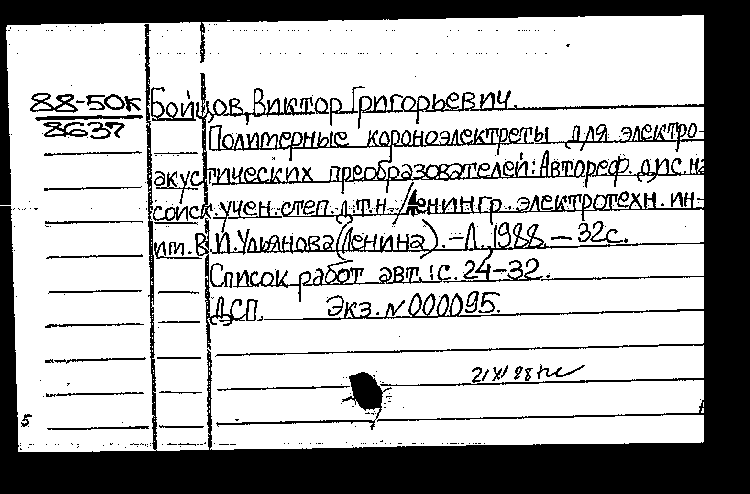 88-50к
8637
Бойцов, Виктор Григорьевич.
Полимерные короноэлектреты для электро-
акустических преобразователей: Автореф. дис. на
соиск. учен. степ. д.т.н. / Ленингр. электротехн. ин-
им. В.И. Ульянова (Ленина). – Л., 1988. – 32с.
Список работ авт.: с. 24-32.
ДСП. Экз. № 000095.
21 XI 88
5